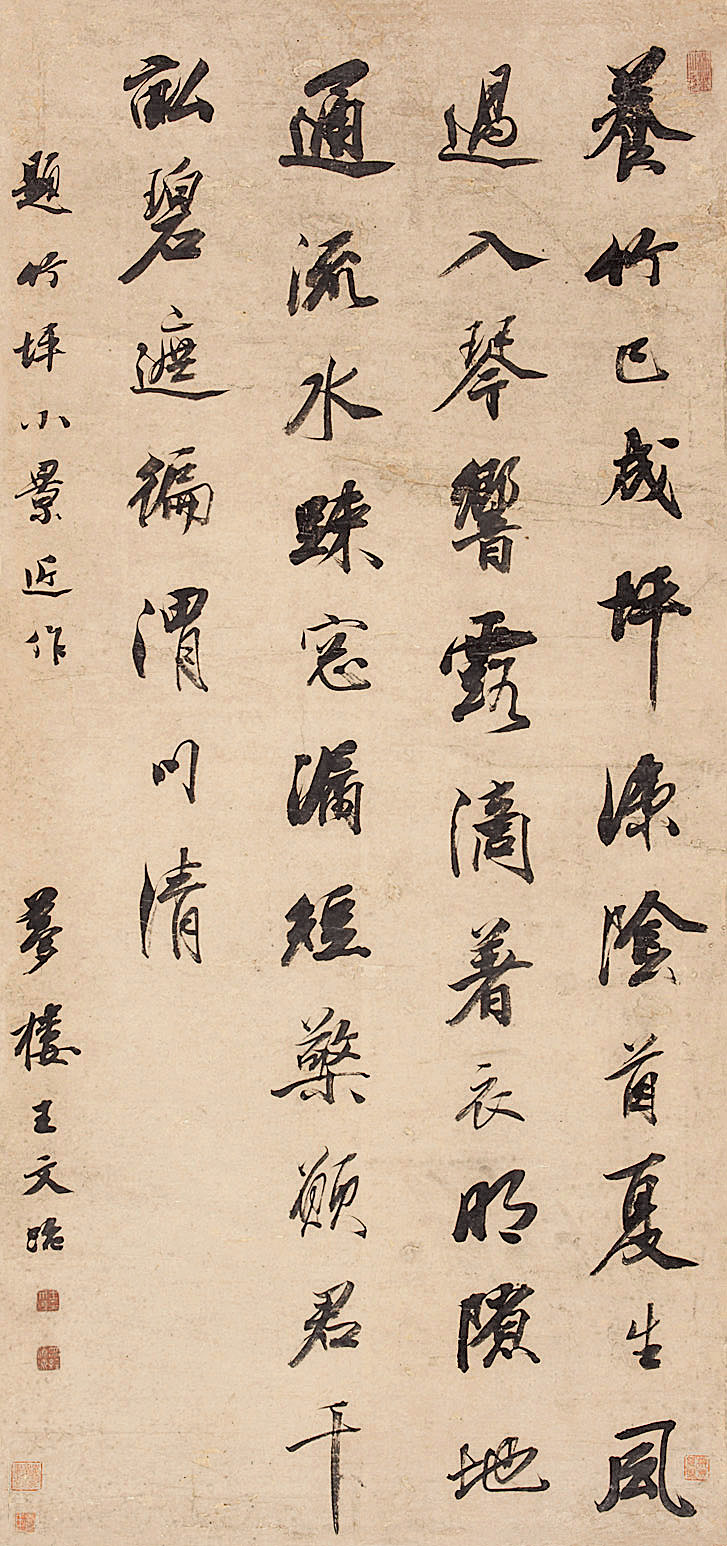 養竹已成坪涼陰首夏生風
過入琴響露滴著衣明隙地
通流水踈窓漏短檠願君千
畝碧遮徧渭川清
題竹坪小景近作
夢樓王文治